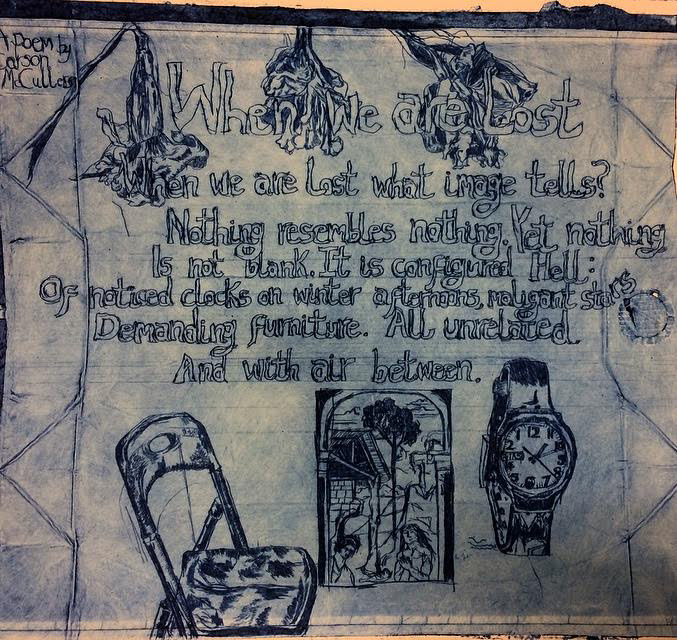 A Poem by
Carson
McCullers
When We are Lost
When we are Lost what image tells?
Nothing resembles nothing. Yet nothing
Is not blank. It is configured Hell:
Of noticed clocks on winter afternoons, malignant stars
Demanding furniture. All unrelated
And with air between.